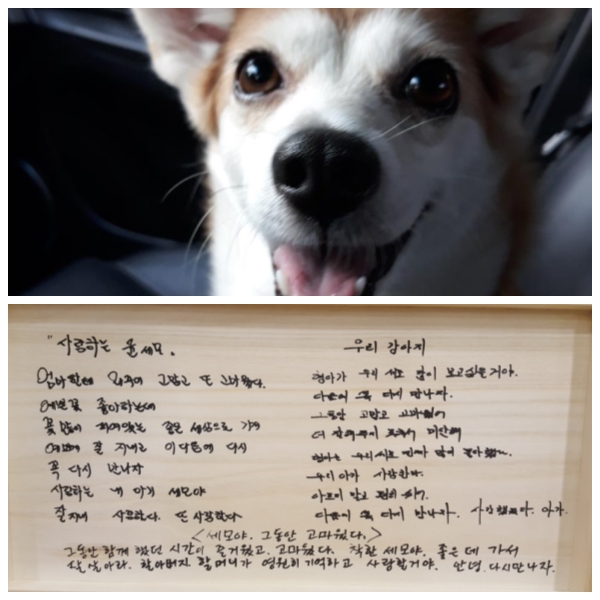 "사랑하는 울세모.
엄마한테 와줘서 고맙고 또 고마웠다.
예쁜꽃 좋아하는데
꽃 많이 피어있는 좋은 세상으로 가서
예쁘게 잘 지내고 이 다음에 다시
꼭 다시 만나자
사랑하는 내 아가 세모야
잘지내 사랑한다. 또 사랑한다
우리 강아지
형아가 우리 세모 많이 보고싶을거야.
다음에 꼭 다시 만나자.
그동안 고맙고 고마웠어
더 잘해주지 못해서 미안해
엄마는 우리세모
우리 아가 사랑한다.
아프지 말고 편히 쉬기.
다음에 꼭 다시 만나자. 사랑했다. 아가.
<세모야. 그동안 고마웠다.>
그동안 함께 했던 시간이 즐거웠고. 고마웠다. 착한 세모야. 좋은 데 가서
잘 살아라. 할아버지 할머니가 영원히 기억하고 사랑할거야. 안녕. 다시만나자.